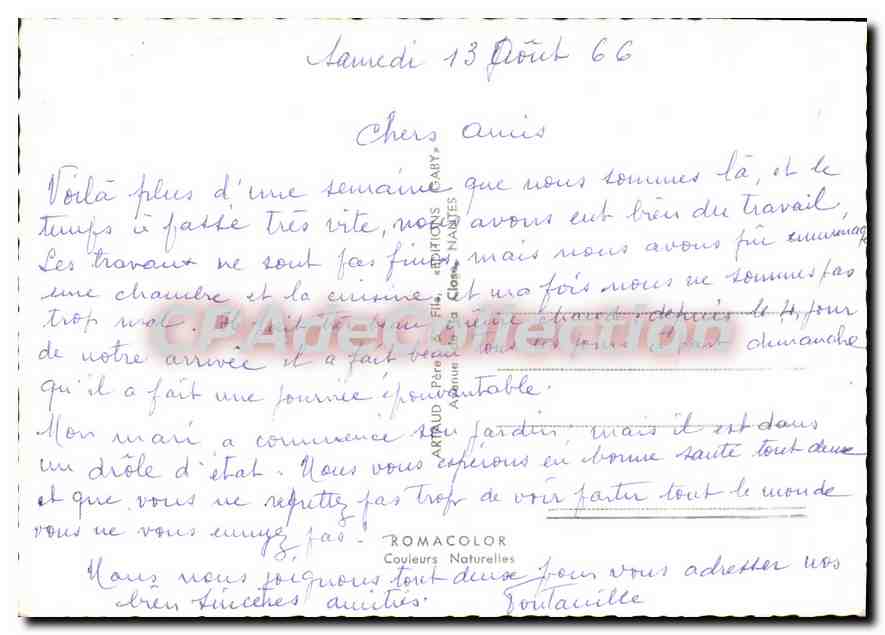 Samedi 13 Août 66
Chers amis
Voilà plus d'une semaine que nous sommes là, et le
temps à passé très vite, nous avons eut bien du travail,
Les travaux ne sont pas finis, mais nous avons pu emménager
une chambre et la cuisine, et ma fois nous ne sommes pas
trop mal. Il fait très beau même chaud depuis le 4 jour
de notre arrivée il a fait beau tous les jours à part dimanche
qu'il a fait une journée épouvantable.
Mon mari a commencé son jardin, mais il est dans
un drôle d'état. Nous vous espérons en bonne santé tout deux
et que vous ne regrettez pas trop de voir partir tout le monde
vous ne vous ennuyez pas!
Nous nous joignons tout deux pour vous adresser nos
bien sincères amitiés.
ARTAUD Père & Fils, «EDITIONS GABY»
NANTES
ROMACOLOR
Couleurs Naturelles
CPAdeCollection